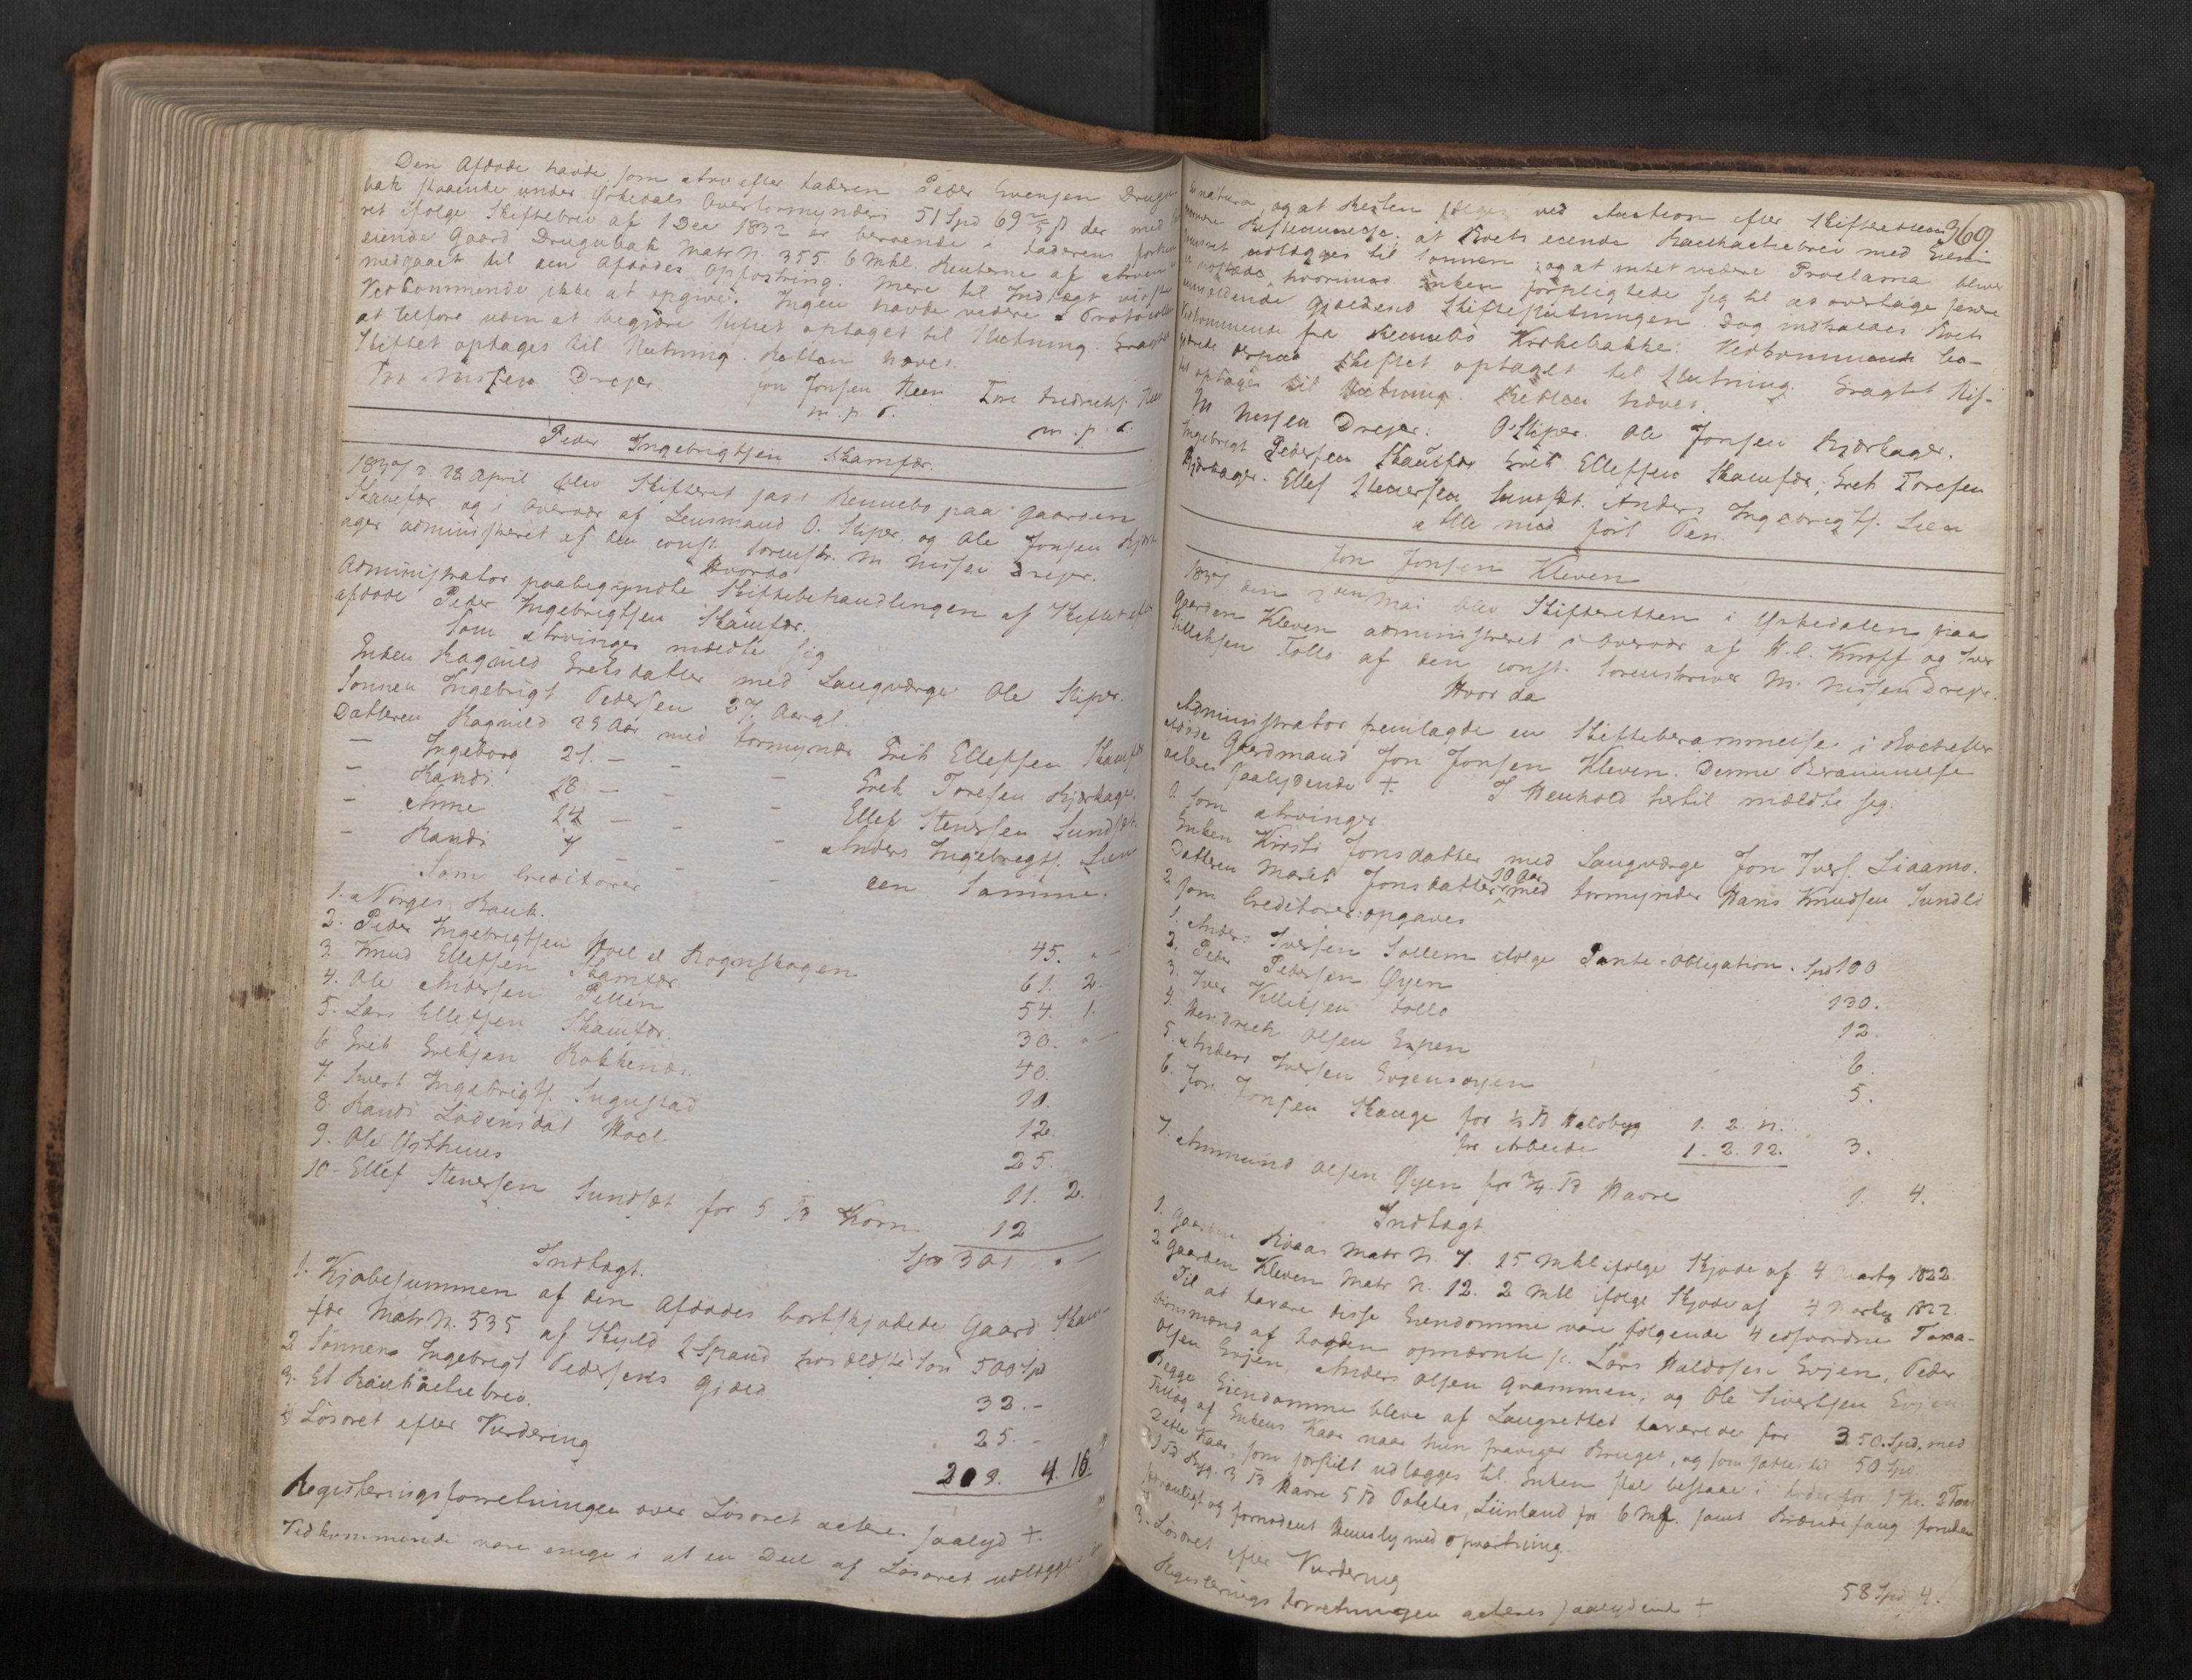 Den Afdøde havde som Arv efter Faderen Peder Svensen Drugu-
bak staaende under Ørkedals Overformynderi 51 Spd 69 2/5 ß der med
ret ifølge Skiftebrev af 1 Dec 1832 er beroende i Faderens
eiende Gaard Drugubak Matr N. 355 6 Mkl. Renterne af Arven
medgaaet til den Afdødes Opfostring. Mere til Indtægt vidste
Vedkommende ikke at opgive. Ingen havde videre Protocollen
at tilføre uden at begjære Skiftet optaget til Slutning. Eragtet
Skiftet optages til Slutning. Retten hævet.
Nissen Drejer Jon Jonsen Steen Tore Fredrichs.
m. p. P. m. p. P.
Peder Ingebrigtsen Skamfær.
1837 d 28 April blev Skifteret sat i Rennebo paa Gaarden
Skamfær og i Overvær af Lensmand O. Stiper, og Ole Jonsen Kjær-
ager administreret af den const. Sorenskr. M Nissen Drejer.
Hvorda
Administrator paabegyndte Skiftebehandlingen af Skiftet efter
afdøde Peder Ingebrigtsen Skamfær.
Som Arvinger mældte sig
Enken Ragnild Eriksdatter med Laugværge Ole Stiper.
Sønnen Ingebrigt Pedersen 27 Aar gl.
Datteren Ragnild 23 Aar med Formynder Erik Ellefsen Skamfær
— Ingeborg 21. — - - Erik Toresen Kjærager.
— Randi 18 — - - Ellef Stenersen Sundset.
— Anne 14 — - - Anders Ingebrigts. Lien
— Randi 7 - - den Samme.
Som Creditorer
1. Norges Bank. 45. " —
2. Peder Ingebrigtsen Hoel el Rognskogen 61. 2.
3. Knud Ellefsen Skamfær 54. 1.
4. Ole Andersen Pellin 30. " —
5. Lars Ellefsen Skamfær. 40.
6 Erik Eriksen Rokkenes. 10.
7. Sivert Ingebrigts. Ingustad 12.
8. Randi Lodensdat Hoel 25.
9. Ole Østhuus 11. 2.
10- Ellef Stenersen Sundset for 5 Td Korn. 12
Spd 301 " —
Indtægt.
1. Kjøbesummen af den Afdødes bortskjødede Gaard Skam-
fær Matr N. 535 af Skyld 2 Spand hos ældste Søn 500 Spd
2 Sønnens Ingebrigt Pedersens Gjæld 32. -
3. Et Bankactiebrev. 25. -
4 Løsøret efter Vurdering 209. 4. 16
Registeringsforretningen over Løsøret acteres saalyd +.
Vedkommende vare enige i at en Deel af Løsøret udlægges
369.
in natura, og at Resten sælges ved Auction efter Skifterettens
nærmere Bestemmelse. at Boets eiende Bankactiebrev med
udlægges til Sønnen, og at intet videre Proclama blev
hvorimod Enken forpligtede sig til at overtage senere
anmeldende Gjæld end Skifteslutningen. Dog indkaldes Boets
Vedkommende fra Rennebo Kirkebakke. Vedkommende be-
gjærede derpaa Skiftet optaget til Slutning. Eragtet Skif-
tet optages til Slutning. Retten hævet.
M Nissen Drejer. O Stiper. Ole Jonsen Kjærager.
Ingebrigt Pedersen Skamfær Erik Ellefsen Skamfær, Erik Toresen
Kjærager. Ellef Stenersen Sundset. Anders Ingebrigts. Lien
Alle med ført Pen.
Jon Jonsen Kleven
1837 den 2den Mai blev Skifteretten i Ørkedalen paa
Gaarden Kleven administreret i Overvær af H. C. Knoff og Iver
Villiksen Follo af den const. Sorenskriver M. Nissen Drejer.
Hvor da
Administrator fremlagde en Skifteberammelse i Boet efter
Afdøde Gaardmand Jon Jonsen Kleven. Denne Berammelse
acteres saalydende +. I Henhold hertil mældte sig.
1 som Arvinger
Enken Kirsti Jonsdatter med Laugværge Jon Ivers. Liaamo.
Datteren Marit Jonsdatter 10 Aar med Formynder Hans Knudsen Sundli
2 som Creditorer opgaves
1. Anders Iversen Sollem ifølge Pante-Obligation. Spd 100
2. Peder Pedersen Øyen 130.
3. Iver Villiksen Follo 12.
4. Hendrich Olsen Espen 6.
5. Anders Iversen Evjensøyen 5.
6. Jon Jonsen Skauge for ½ Td Malebyg 1. 2. 12.
for Arbeide 1. 2. 12. 3.
7. Ammund Olsen Øyen for ¾ Td Havre 1. 4.
Indtægt
1. Gaarden Raaa Matr N. 7. 15 Mkl ifølge Skjøde af 4 Martz 1822.
2 Gaarden Kleven Matr N. 12. 2 Mkl ifølge Skjøde af 4 Martz 1822.
Til at taxere disse Eiendomme vare følgende 4 edsvorne Taxa-
tionsmænd af Fogden opnævnte sc. Lars Haldosen Evjen, Peder
Olsen Evjen, Anders Olsen Qvammen, og Ole Sivertsen Evjen.
Begge Eiendomme bleve af Laugrettet taxerede for 350. Spd. med
Fradrag af Enkens Kaar naar hun fraviger Bruget, og som sattes til 50 Spd.
Dette Kaar, som særskilt udlægges til Enken skal bestaae i Foder for 1 Ko. 2 Faar
1 Td Byg. 3 Td Havre 5 Td Potetes, Liinland for 6 Mk. samt Brændefang foruden
forsvarligt og fornødent Huusly med Opvartning.
3. Løsøret efter Vurdering 58 Spd 4.
Registerings Forretningen acteres saalydende +